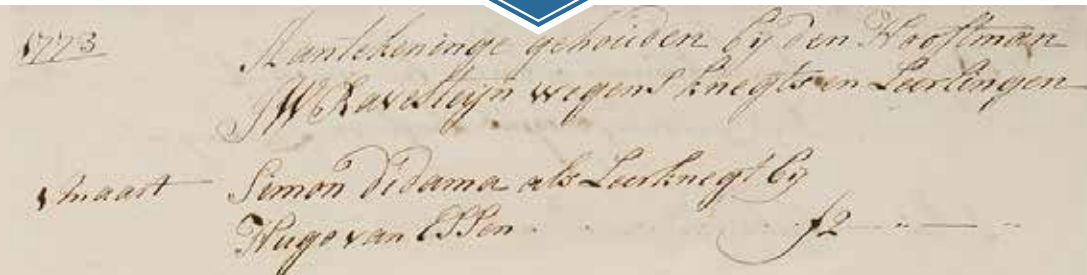 1773 Aantekeninge gehouden by den Hooftman
JW Ravesteijn wegens knegts en Leerlingen
1 maart Simon Didama als Leerknegt by
Hugo van Essen f2 -- " -- "